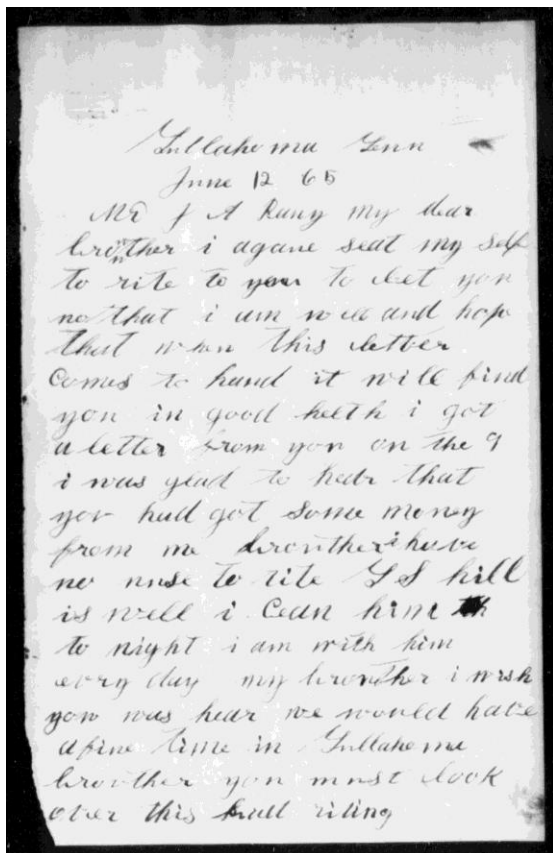 Tullahoma Tenn
June 12 65
Mr J A Rany my dear
brouther i agane seat my self
to rite to you to let you
no that i am well and hope
that when this letter
comes to hand it will find
you in good helth i got
a letter from you on the 9
i was glad to hear that
you had got some money
from me brouther i have
no nuse to rite hill
is well i him
to night i am with him
evry day my brouther i wish
you was hear we would have
a fine time in Tullahoma
brouther you must look
over this riting